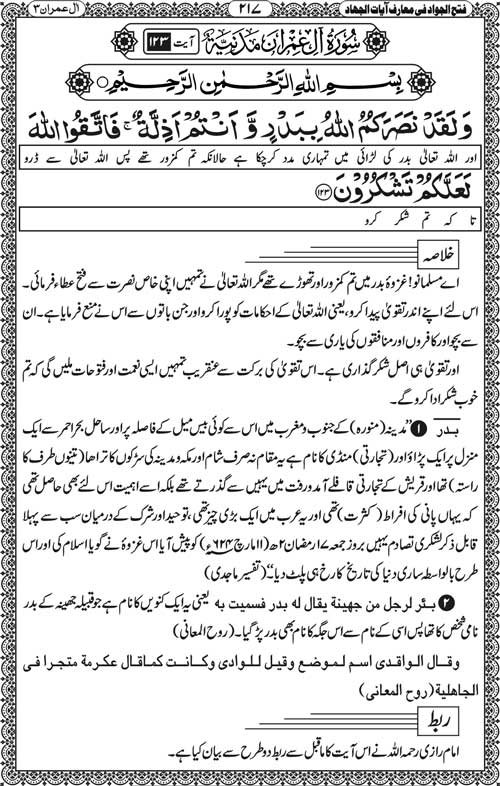 فتح الجواد فی معارف آیات الجهاد ٢١٧ آل عمران ٣
سُوْرَةُ اٰلِ عِمْرَانَ مَدَنِيَّةٌ آیت ١٢٣
بِسْمِ اللهِ الرَّحْمٰنِ الرَّحِيْمِ
وَلَقَدْ نَصَرَكُمُ اللهُ بِبَدْرٍ وَّاَنْتُمْ اَذِلَّةٌ ۚ فَاتَّقُوا اللهَ
اور اللہ تعالیٰ بدر کی لڑائی میں تمہاری مدد کرچکا ہے حالانکہ تم کمزور تھے پس اللہ تعالیٰ سے ڈرو
لَعَلَّكُمْ تَشْكُرُوْنَ ١٢٣
تا کہ تم شکر کرو
خلاصہ
اے مسلمانو! غزوۂ بدر میں تم کمزور اور تھوڑے تھے مگر اللہ تعالیٰ نے تمہیں اپنی خاص نصرت سے فتح عطاء فرمائی۔
اس لئے اپنے اندر تقویٰ پیدا کرو، یعنی اللہ تعالیٰ کے احکامات کو پورا کرو اور جن باتوں سے اس نے منع فرمایا ہے۔ ان
سے بچو اور کافروں اور منافقوں کی یاری سے بچو۔
اور تقویٰ ہی اصل شکر گذاری ہے۔ اس تقویٰ کی برکت سے عنقریب تمہیں ایسی نعمت اور فتوحات ملیں گی کہ تم
خوب شکر ادا کرو گے۔
بدر ❶ ”مدینہ (منورہ) کے جنوب و مغرب میں اس سے کوئی بیس میل کے فاصلہ پر اور ساحل بحر احمر سے ایک
منزل پر ایک پڑاؤ اور (تجارتی) منڈی کا نام ہے یہ مقام نہ صرف شام اور مکہ و مدینہ کی سڑکوں کا تراھا (تینوں طرف کا
راستہ) تھا اور قریش کے تجارتی قافلے آمدورفت میں یہیں سے گذرتے تھے بلکہ اسے اہمیت اس لئے بھی حاصل تھی
کہ یہاں پانی کی افراط (کثرت) تھی اور یہ عرب میں ایک بڑی چیز تھی، توحید اور شرک کے درمیان سب سے پہلا
قابل ذکر لشکری تصادم یہیں بروز جمعہ ۱۷ رمضان ۲ھ (۱۱ مارچ ۶۲۴ء) کو پیش آیا اس غزوہ نے گویا اسلام کی اور اس
طرح بالواسطہ ساری دنیا کی تاریخ کا رخ ہی پلٹ دیا۔“ (تفسیر ماجدی)
❷ بئر لرجل من جهينة يقال له بدر فسميت به یعنی یہ ایک کنویں کا نام ہے جو قبیلہ جھینہ کے بدر
نامی شخص کا تھا پس اسی کے نام سے اس جگہ کا نام بھی بدر پڑ گیا۔ (روح المعانی)
وقال الواقدی اسم لموضع وقيل للوادی وكانت كماقال عكرمة متجرا فی
الجاهلية (روح المعانی)
ربط
امام رازی رحمہ اللہ نے اس آیت کا ماقبل سے ربط دو طرح سے بیان کیا ہے۔